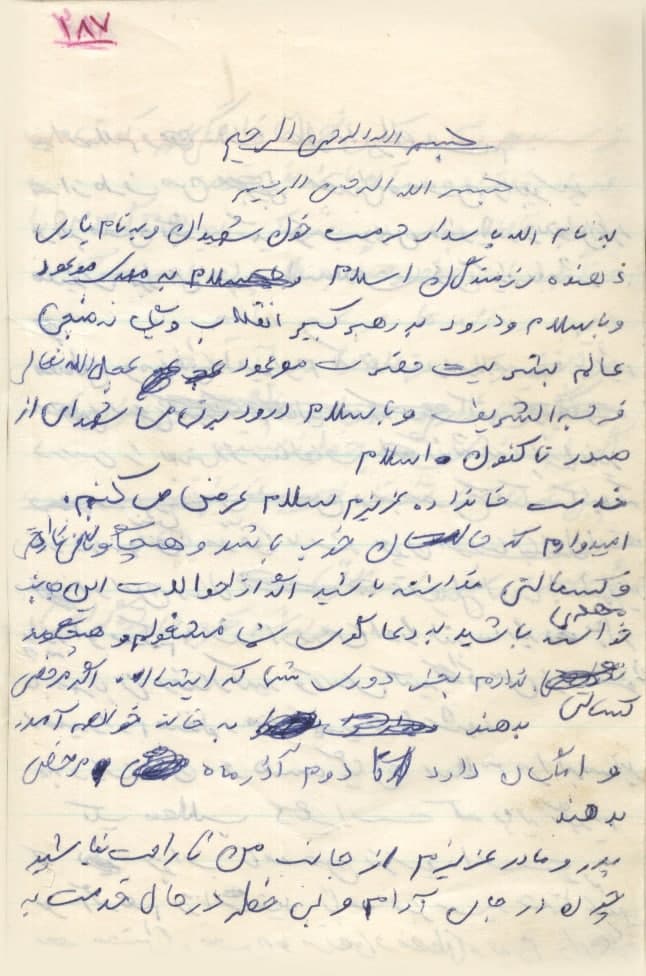 ۲۸۷
بسم الله الرحمن الرحیم
بسم الله الرحمن الرحیم
به نام الله پاسدار حرمت خون شهیدان و به نام یاری
دهنده رزمندگان اسلام و سلام به مهدی موعود
و با سلام و درود به رهبر کبیر انقلاب و
عالم بشریت حضرت موعود عجل الله تعالی
فرجه الشریف و با سلام درود بر تمامی شهدای از
صدر تا کنون اسلام
خدمت خانواده عزیزم سلام عرض می کنم.
امیدوارم که حالتان خوب باشد و هیچگونه
و کسالتی نداشته باشید اگر از احوالات این جانب
خواسته باشید به دعا گوی شما مشغولم و هیچگونه
ندارم بجز دوری شما که انشااله اگر مرخصی
کسالتی
بدهند به خانه خواهم آمد
و امکان دارد تا دوم آذر ماه مرخصی
بدهند
پدر و مادر عزیزم از جانب من ناراحت نباشید
چون در جای آرام و بی خطر در حال خدمت به